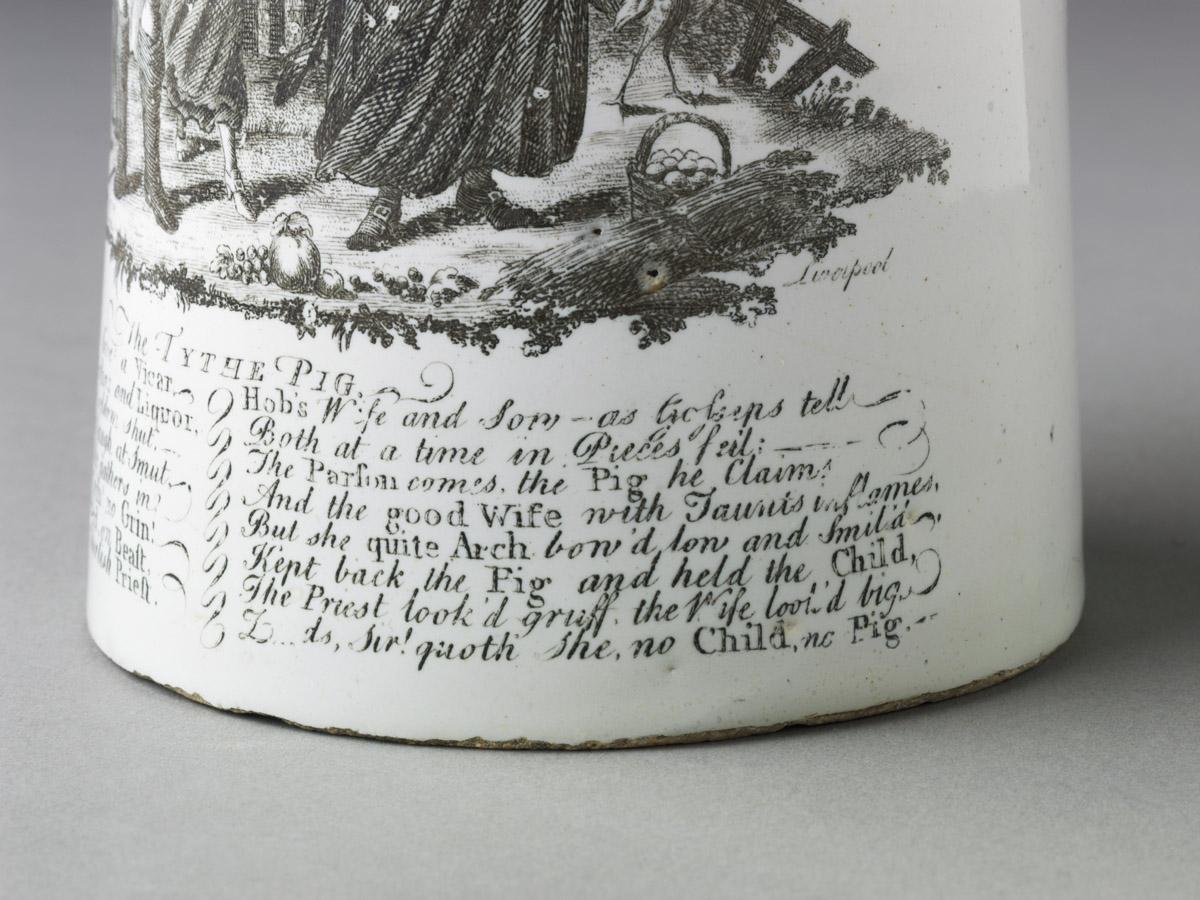 Liverpool
The TYTHE PIG.
a Vicar,
and Liquor,
shut
at Smut,
in
no Grin!
Beast,
Priest.
Hob's Wife and Sow – as Gossips tell
Both at a time in Pieces fell:
The Parson comes, the Pig he Claims
And the good Wife with Taunts inflames,
But she quite Arch bow'd low and Smil'd,
Kept back the Pig and held the Child,
The Priest look'd gruff, the Wife look'd big,
Z...ds, Sir! quoth she, no Child, no Pig.